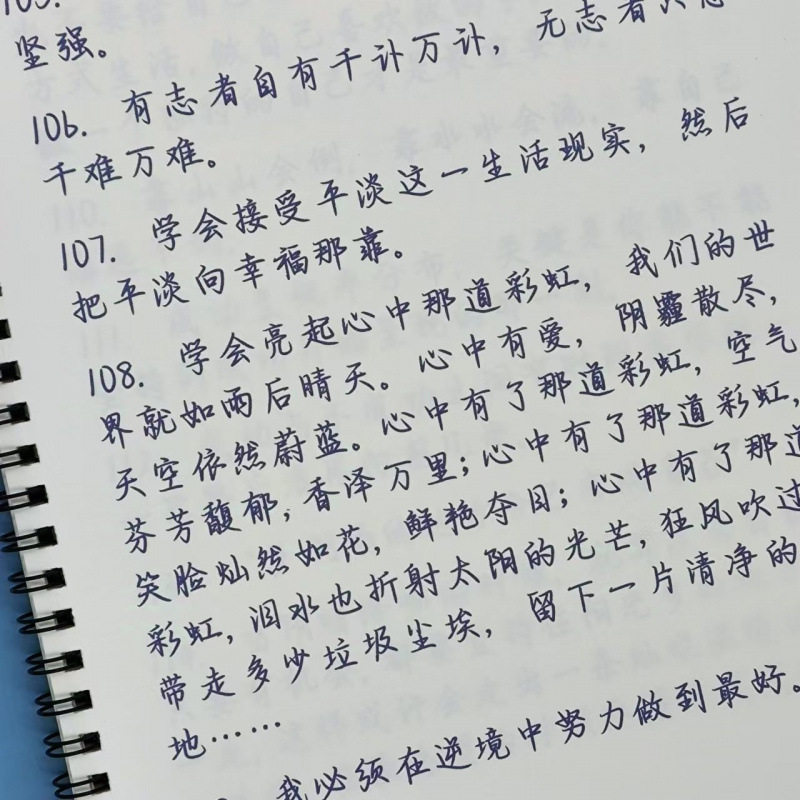 坚强。
106. 有志者自有千计万计，无志者只
千难万难。
107. 学会接受平淡这一生活现实，然后
把平淡向幸福那靠。
108. 学会亮起心中那道彩虹，我们的世
界就如雨后晴天。心中有爱，阴霾散尽，
天空依然蔚蓝。心中有了那道彩虹，空气
芬芳馥郁，香泽万里；心中有了那道彩虹，
笑脸灿然如花，鲜艳夺目；心中有了那道
彩虹，泪水也折射太阳的光芒，狂风吹过
带走多少垃圾尘埃，留下一片清净的
地……
我必须在逆境中努力做到最好。